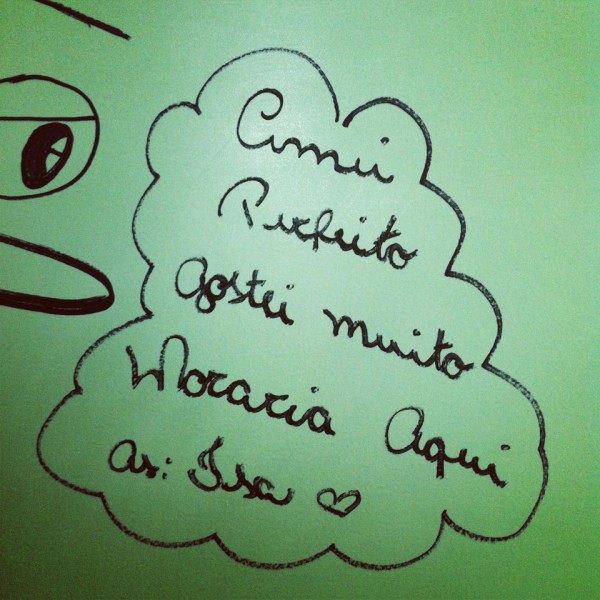 Amei
Perfeito
Gostei muito
Moraria Aqui
As: Isa